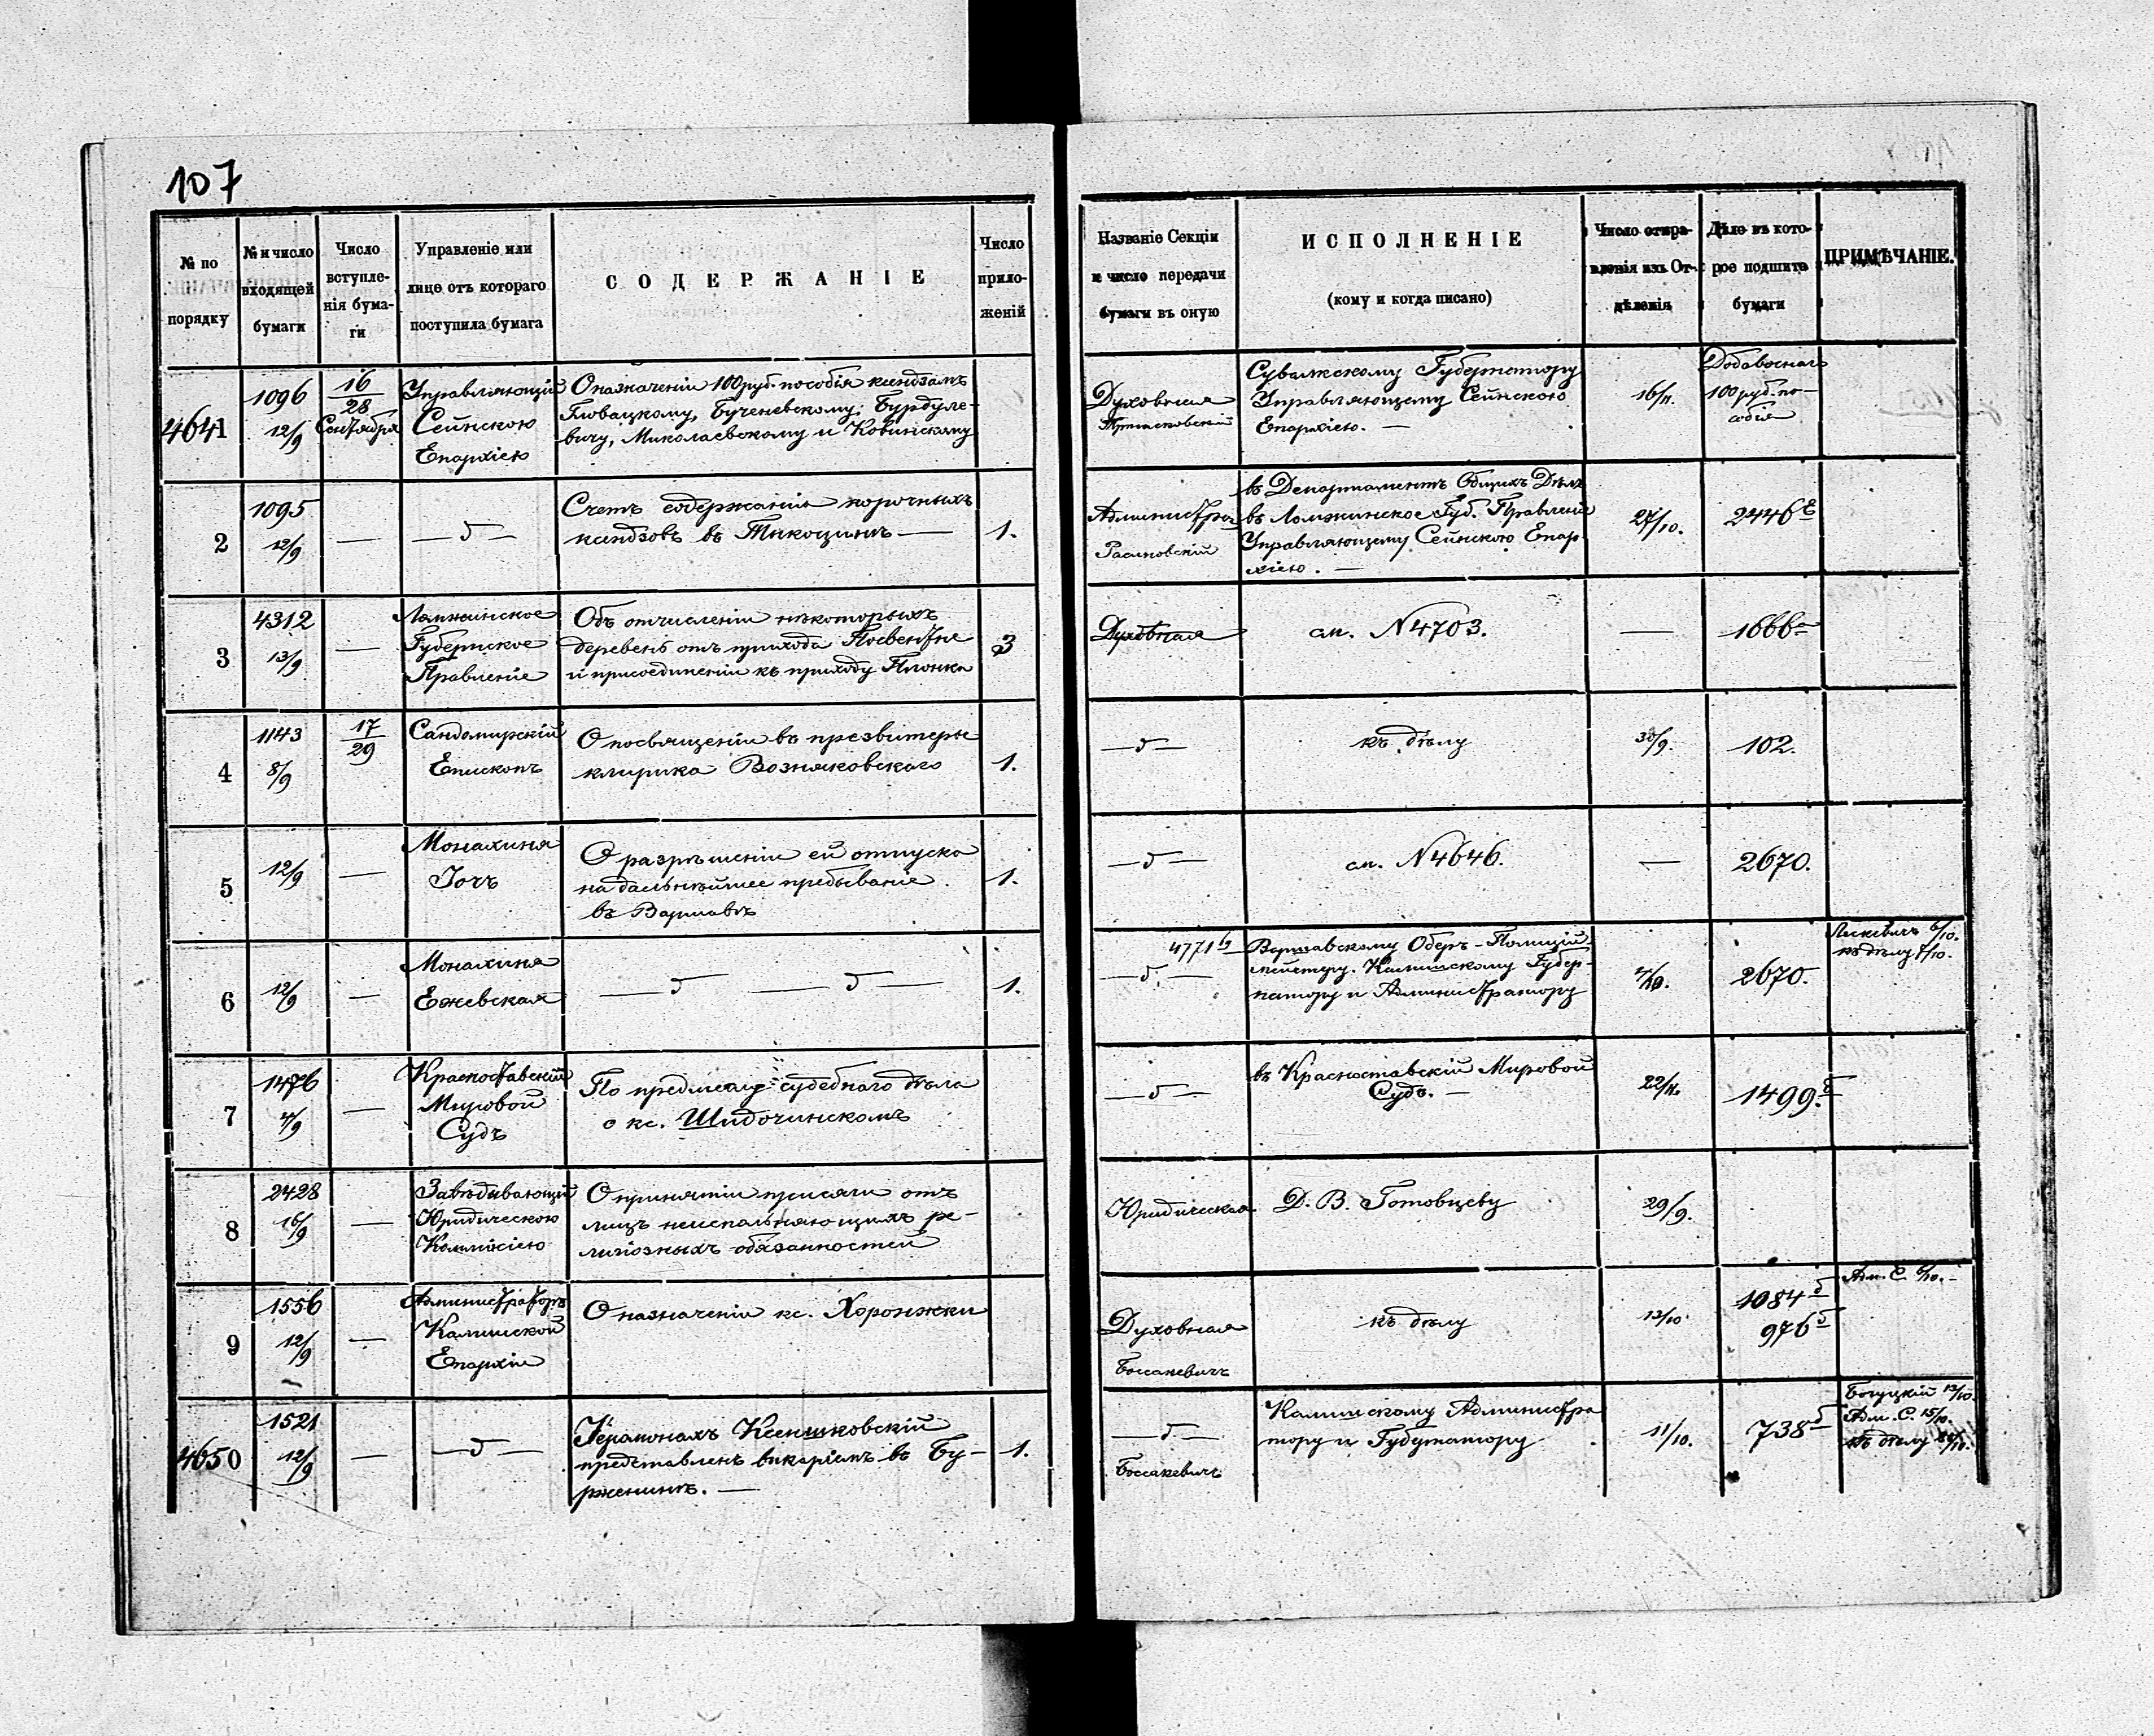 107
№ по порядку
№ и число входящей бумаги
Число вступленія бумаги
Управленіе или лице отъ котораго поступила бумага
СОДЕРЖАНІЕ
Число приложеній
Названіе Секціи и число передачи бумаги въ оную
ИСПОЛНЕНІЕ
(кому и когда писано)
Число отправленія изъ Отдѣленія
Дѣло въ которое подшита бумаги
ПРИМѢЧАНІЕ.
4641
1096
12/9
16/28
Сентября
Управляющій
Сейнскою
Епархіею
О назначеніи 100 руб. пособія ксендзамъ
Гловацкому, Бученевскому, Бурдуле-
вичу, Миколаевскому и Ковинскому
Духовная
Сувалкскому Губернатору
Управляющему Сейнскою
Епархіею. —
16/11.
Добавочнаго
100 руб. по-
собія
2
1095
12/9
—
— д —
Счетъ содержанія порочныхъ
ксендзовъ въ Тыкоцинѣ —
1.
Администра
въ Департаментъ Общихъ Дѣлъ
въ Ломжинское Губ. Правленіе
Управляющему Сейнскою Епар
хіею. —
27/10.
2446 Е
3
4312
13/9
—
Ломжинское
Губернское
Правленіе
Объ отчисленіи нѣкоторыхъ
деревень отъ прихода Посвентне
и присоединеніи къ приходу Плонка
3
Духовная
см. N 4703.
—
1666 а
4
1143
8/9
17/29
Сандомирскій
Епископъ
О посвященіи въ пресвитеры
клирика Возняковскаго
1.
— д —
къ дѣлу
30/9.
102.
5
12/9
—
Монахиня
Гочъ
О разрѣшеніи ей отпуска
на дальнѣйшее пребываніе
въ Варшавѣ
1.
— д —
см. N 4646.
—
2670.
6
12/9
—
Монахиня
Ежевская
— д — — д —
1.
4771
— д —
Варшавскому Оберъ-Полицій-
мейстеру. Калишскому Губер-
натору и Администратору
4/10.
2670.
къ дѣлу
7
1476
4/9
—
Красноставскій
Мировой
Судъ
По предмету судебнаго дѣла
о кс. Шидочинскомъ
— д —
въ Красноставскій Мировой
Судъ. —
22/11.
1499. б
8
2428
16/9
—
Завѣдывающій
Юридическою
Коммисіею
О принятіи присяги отъ
лицъ неисполняющихъ ре-
лигіозныхъ обязанностей
Юридическая
Д. В. Готовцеву
29/9.
9
1556
12/9
—
Администраторъ
Калишской
Епархіи
О назначеніи кс. Хоронжки
Духовная
Боссакевичъ
къ дѣлу
13/10
1084 б
976 б
Адм. С. 6/10. —
4650
1521
12/9
—
— д —
Іеромонахъ Ксенжковскій
представленъ викаріемъ въ Бу-
рженинъ. —
1.
— д —
Боссакевичъ
Калишскому Администра
тору и Губернатору
11/10.
738 б
Богуцкій 12/10.
Адм. С. 15/10.
къ дѣлу